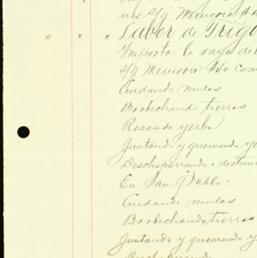 s/g Memoria
" " " Labor de Trigo
Importa la raya de
s/g Memoria
Cuidando mulas
Barbechando tierras
Rosando yerba
Juntando y quemando ye
Deschaparrando
En San Pablo:
Cuidando mulas
Barbechando tierras
Juntando y quemando y